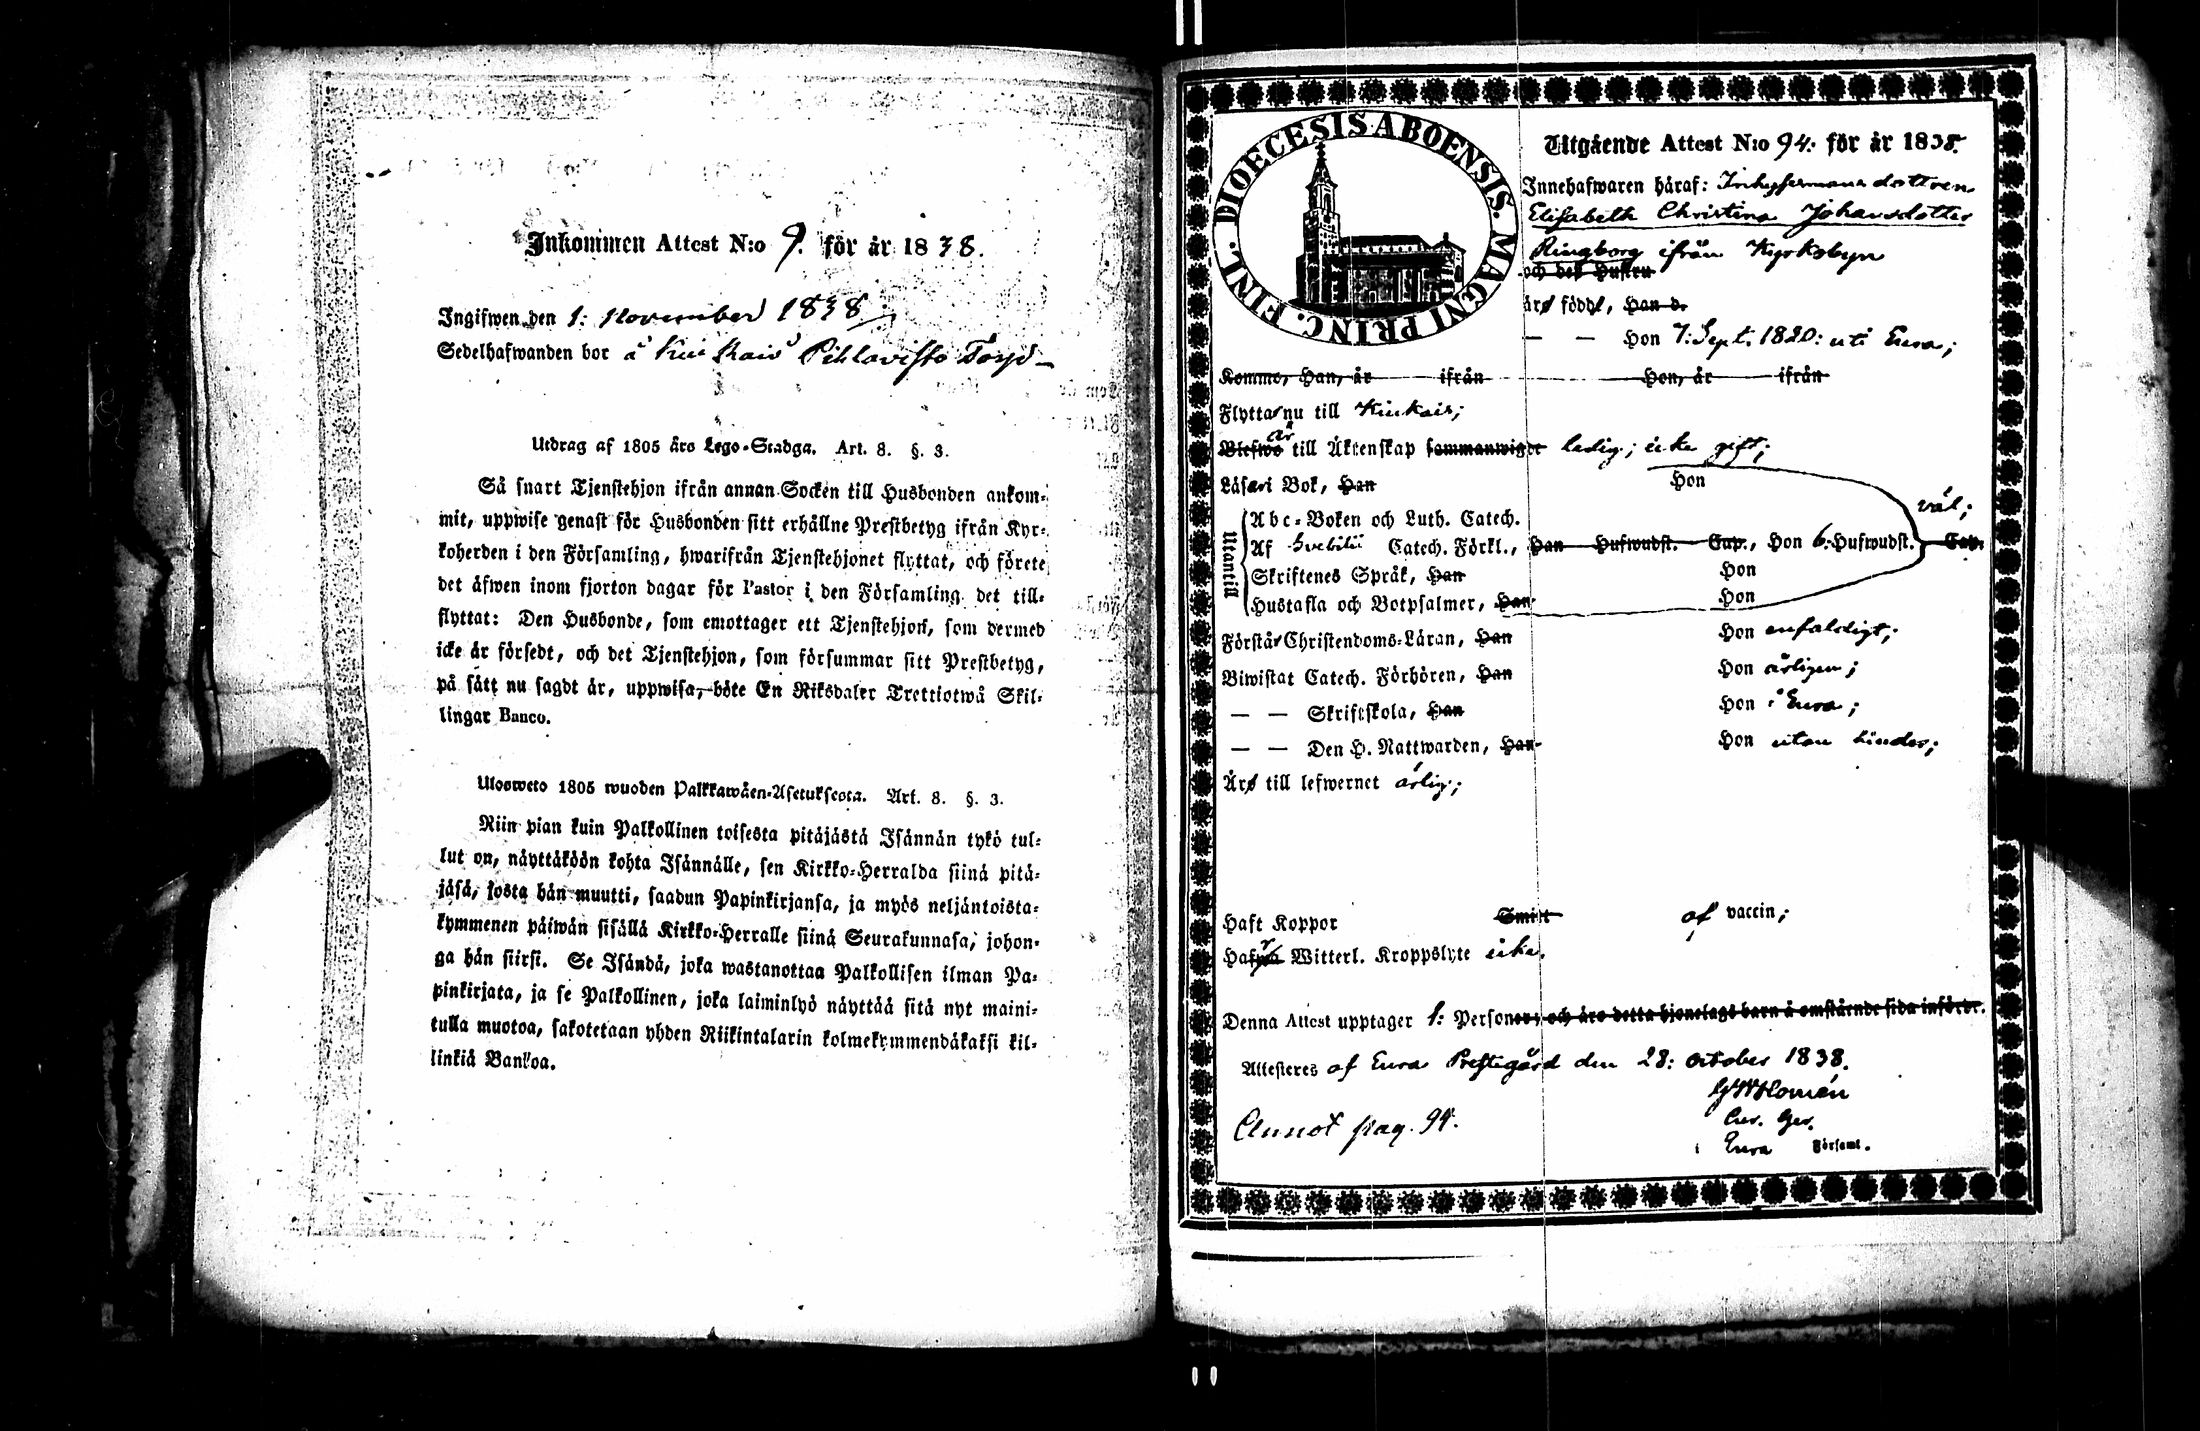 Inkommen Attest N:o 9. för år 1838.
Ingifwen den 1: November 1838
Sedelhafwanden bor å Kiukais Pihlavisto Torp
Utdrag af 1805 års Lego-Stadga. Art. 8. §. 3.
Så snart Tjenstehjon ifrån annan Socken till Husbonden ankom-
mit, uppwise genast för Husbonden sitt erhållne Prestbetyg ifrån Kyr-
koherden i den Församling, hwarifrån Tjenstehjonet flyttat, och förete
det äfwen inom fjorton dagar för Pastor i den Församling det till-
flyttat: Den Husbonde, som emottager ett Tjenstehjon, som dermed
icke är försedt, och det Tjenstehjon, som försummar sitt Prestbetyg,
på sätt nu sagdt är, uppwisa, böte En Riksdaler Trettiotwå Skil-
lingar Banco.
Uloswеto 1805 wuoden Palkkawäen-Asetuksesta. Art. 8. §. 3.
Niin pian kuin Palkollinen toisesta pitäjästä Isännän tykö tul-
lut on, näyttäköön kohta Isännälle, sen Kirkko-Herralda siinä pitä-
jäsä, josta hän muutti, saadun Papinkirjansa, ja myös neljäntoista-
kymmenen päiwän sisällä Kirkko-Herralle siinä Seurakunnasa, johon-
ga hän siirsi. Se Isändä, joka wastanottaa Palkollisen ilman Pa-
pinkirjata, ja se Palkollinen, joka laiminlyö näyttää sitä nyt maini-
tulla muotoa, sakotetaan yhden Riikintalarin kolmekymmendäkaksi kil-
linkiä Bankoa.
FINL. DIOECESIS ABOENSIS. MAGNI PRINC.
Utgående Attest N:o 94. för år 1838.
Innehafwaren häraf: dottren
Elisabeth Christina Johansdotter
Ringborg ifrån Kyrkobyn
och des Hustru
äro födde, Han d.
— — Hon 7. Sept. 1820: uti Eura;
Komme, Han, år ifrån Hon, år ifrån
Flytta nu till Kiukais;
är
Blefwo till Äktenskap sammanwigde ledig; icke gift;
Läsa i Bok, Han Hon
väl;
Utantill
Abc-Boken och Luth. Catech.
Af Svebilii Catech. Förkl., Han Hufwudst. Cap., Hon 6. Hufwudst. Cap.
Skriftenes Språk, Han Hon
Hustafla och Botpsalmer, Han Hon
Förstår Christendoms-Läran, Han Hon enfaldigt;
Biwistat Catech. Förhören, Han Hon årligen;
— — Skriftskola, Han Hon i Eura;
— — Den H. Nattwarden, Han Hon utan hinder;
Äro till lefwernet ärlig;
Haft Koppor Smitt af vaccin;
Hafwa Witterl. Kroppslyte icke.
Denna Attest upptager 1: Personer, och äro detta hjonelags barn å omstående sida införde.
Attesteres af Eura Prestegård den 28: October 1838.
Homén
Cur. Ger.
i Eura Församl.
Annot pag. 94.